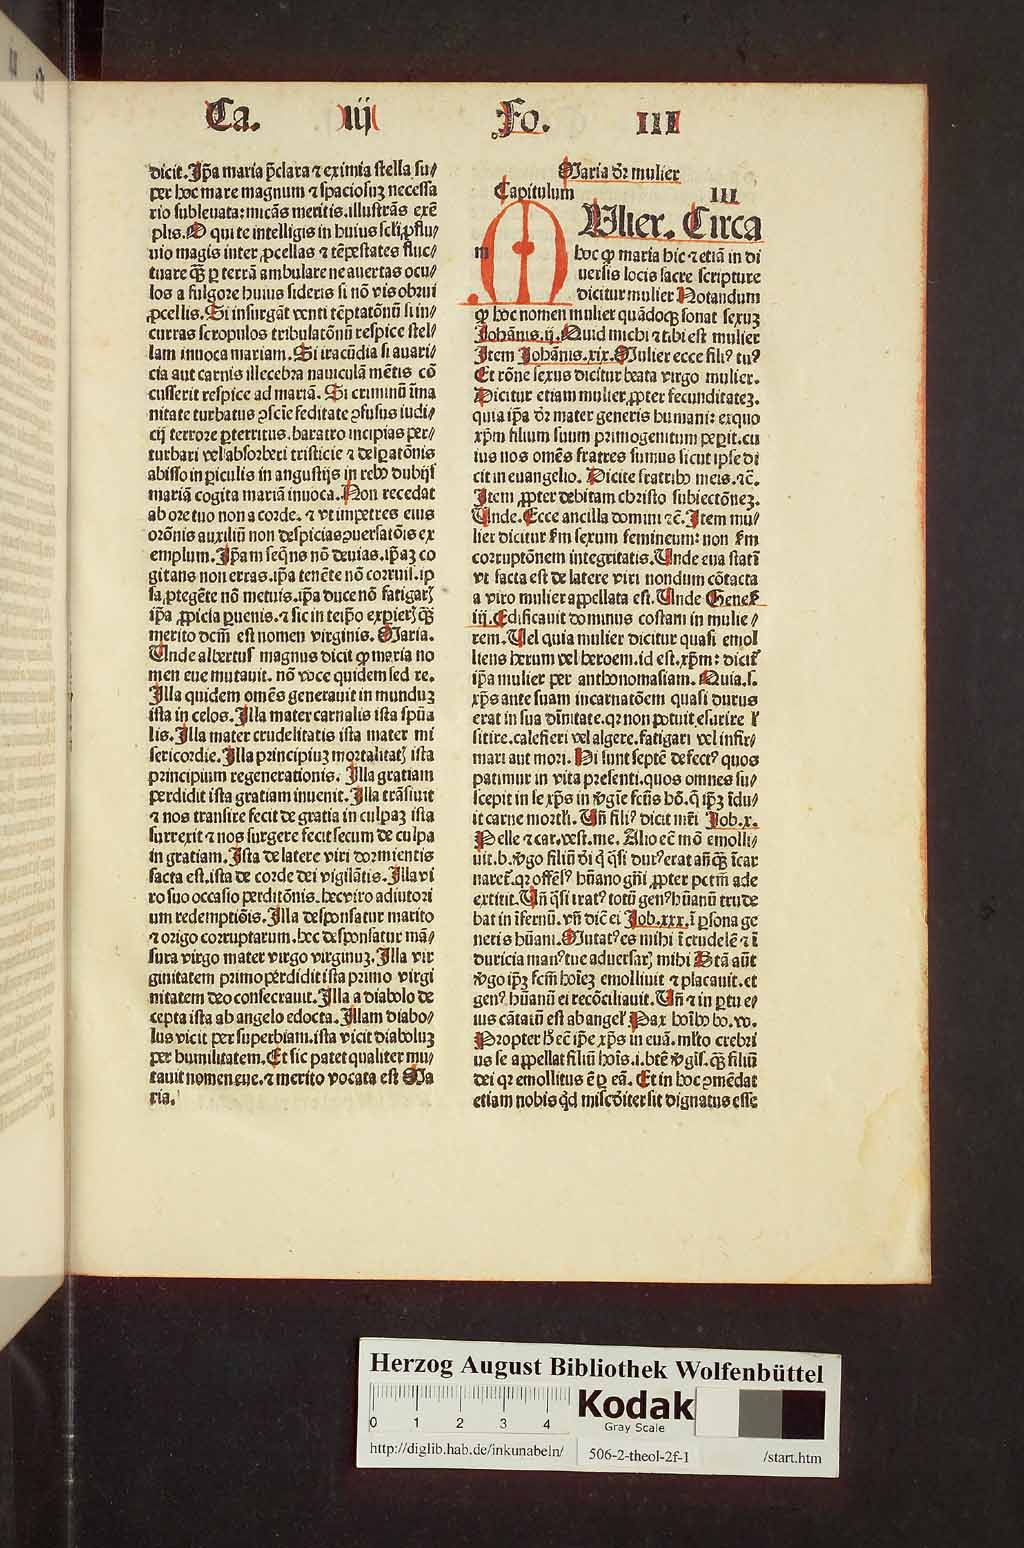 Ca. iij Fo. III
dicit. Ip̄a maria p̄clara ⁊ eximia stella su⸗
per hoc mare magnum ⁊ spaciosuꝫ necessa
rio subleuata: micās meritis. illustrās exē
plis. O qui te intelligis in huius scl̓i ꝓflu⸗
uio magis inter ꝓcellas ⁊ tēpestates fluc⸗
tuare qȝ̄ ꝑ terrā ambulare ne auertas ocu⸗
los a fulgore huius sideris si nō vis obrui
ꝓcellis. Si insurgāt venti tēptatōnū si in⸗
curras scropulos tribulatōnū respice stel⸗
lam inuoca mariam. Si iracūdia si auari⸗
cia aut carnis illecebra nauiculā mētis cō
cusserit respice ad mariā. Si criminū īma
nitate turbatus ꝯscīe feditate ꝯfusus iudi⸗
cij terrore ꝑterritus. baratro incipias per⸗
turbari vel absorberi tristicie ⁊ desꝑatōnis
abisso in ꝑiculis in angustijs in rebꝰ dubijs
mariā cogita mariā inuoca. Non recedat
ab ore tuo non a corde. ⁊ vt impetres eius
orōnis auxiliū non despicias ꝯuersatōis ex
emplum. Ip̄am seqn̄s nō deuias. ip̄aꝫ co
gitans non erras. ip̄a tenēte nō corruis. ip
sa ꝓtegēte nō metuis. ip̄a duce nō fatigarꝭ
ip̄a ꝓpicia ꝑuenis. ⁊ sic in teip̄o exꝑierꝭ qȝ̄
merito dcm̄ est nomen virginis. Maria.
Unde albertus magnus dicit ꝙ maria no
men eue mutauit. nō voce quidem sed re.
Illa quidem omēs generauit in munduꝫ
ista in celos. Illa mater carnalis ista spūa
lis. Illa mater crudelitatis ista mater mi
sericordie. Illa principiuꝫ mortalitatꝭ ista
principium regenerationis. Illa gratiam
perdidit ista gratiam inuenit. Illa trāsiuit
⁊ nos transire fecit de gratia in culpaꝫ ista
surrexit ⁊ nos surgere fecit secum de culpa
in gratiam. Ista de latere viri dormientis
facta est. ista de corde dei vigilātis. Illa vi
ro suo occasio perditōnis. hec viro adiutori
um redemptiōis. Illa desponsatur marito
⁊ origo corruptarum. hec desponsatur mā⸗
sura virgo mater virgo virginuꝫ. Illa vir
ginitatem primo perdidit ista primo virgi
nitatem deo consecrauit. Illa a diabolo de
cepta ista ab angelo edocta. Illam diabo⸗
lus vicit per superbiam. ista vicit diaboluꝫ
per humilitatem. Et sic patet qualiter mu⸗
tauit nomen eue. ⁊ merito vocata est Ma
ria.
Maria dr̄ mulier
Capitulum III
m
Ulier. Circa
hoc ꝙ maria hic ⁊ etiā in di
uersis locis sacre scripture
dicitur mulier Notandum
ꝙ hoc nomen mulier quādocȝ sonat sexuꝫ
Johānis. ij. Quid michi ⁊ tibi est mulier
Item Johānis. xix. Mulier ecce filiꝰ tuꝰ
Et rōne sexus dicitur beata virgo mulier.
Dicitur etiam mulier ꝓpter fecunditateꝫ.
quia ip̄a dr̄ mater generis humani: ex quo
xp̄m filium suum primogenitum peperit. cu
ius nos omēs fratres sumus sicut ipse di
cit in euangelio. Dicite fratribꝰ meis. ⁊c̄.
Item ꝓpter debitam christo subiectōneꝫ.
Unde. Ecce ancilla domini ⁊c̄. Item mu⸗
lier dicitur km̄ sexum femineum: non km̄
corruptōnem integritatis. Unde eua statī
vt facta est de latere viri nondum cōtacta
a viro mulier appellata est. Unde Genes̄
iij. Edificauit dominus costam in mulie⸗
rem. Uel quia mulier dicitur quasi emol
liens herum vel heroem. id est. xp̄m: dicit̄
ip̄a mulier per anthonomasiam. Quia. s.
xp̄s ante suam incarnatōem quasi durus
erat in sua diītate. qꝛ non potuit esurire l̓
sitire. calefieri vel algere. fatigari vel infir⸗
mari aut mori. Hi sunt septē defectꝰ quos
patimur in vita presenti. quos omnes su⸗
scepit in se xp̄s in v̓gīe
it carne mortl̓i. Un̄ filiꝰ dicit mr̄i Job. x.
Pelle ⁊ car. vest. me. Alio em̄ mō emolli⸗
uit. b. v̓go filiū dei q̇ q̄si durꝰ erat an̄ qȝ̄ īcar
naret̄. qꝛ offēsꝰ hūano gn̄i ꝓpter pctm̄ ade
extitit. Un̄ q̄si iratꝰ totū genꝰ hūanū trude
bat in īfernū. vn̄ dic̄ ei Job. xxx. ī ꝑsona ge
neris hūani. Mutatꝰ es mihi ī crudelē ⁊ ī
duricia manꝰ tue aduersarꝭ mihi Btā aūt
v̓go ip̄ꝫ fcm̄ hoīeꝫ emolliuit ⁊ placauit. et
genꝰ hūanū ei recōciliauit. Un̄ ⁊ in ꝑtu e⸗
ius cātatū est ab angel̓ Pax hoībꝰ bo. vo.
Propter h̓ em̄ ip̄e xp̄s in euā. ml̓to crebri
us se appellat filiū hoīs. i. btē v̓gīs. qȝ̄ filiū
dei qꝛ emollitus ē ꝑ eā. Et in hoc ꝯmēdat
etiam nobis q̇d misc̓diter sit dignatus esse
Herzog August Bibliothek Wolfenbüttel
0 1 2 3 4
Kodak
Gray Scale
http://diglib.hab.de/inkunabeln/ 506-2-theol-2f-1 /start.htm